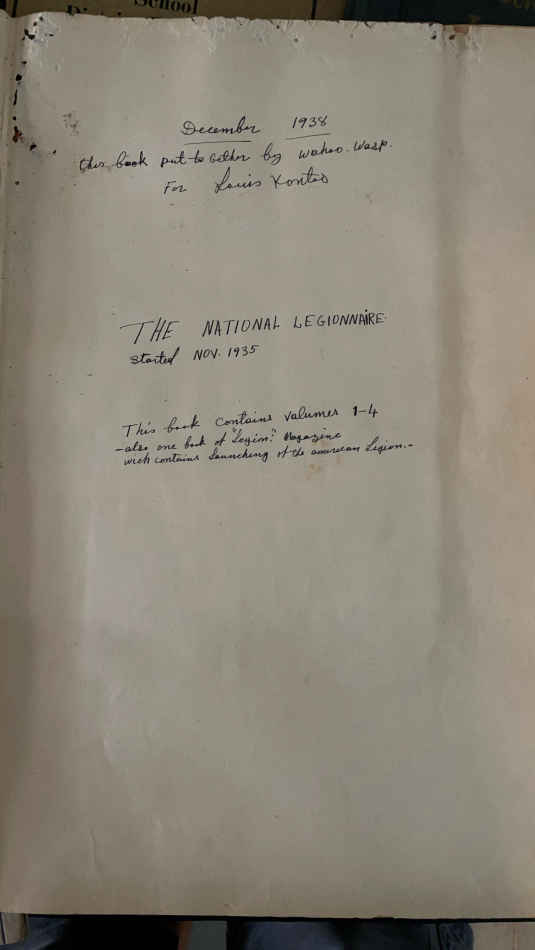 School
December 1938
this book put to Gether by Wahoo-Wasp.
For Louis Kontos
THE NATIONAL LEGIONNAIRE
started NOV. 1935
This book contains valumes 1-4
-also one book of "Legion" Magazine
wich contains Launching of the american Legion.-